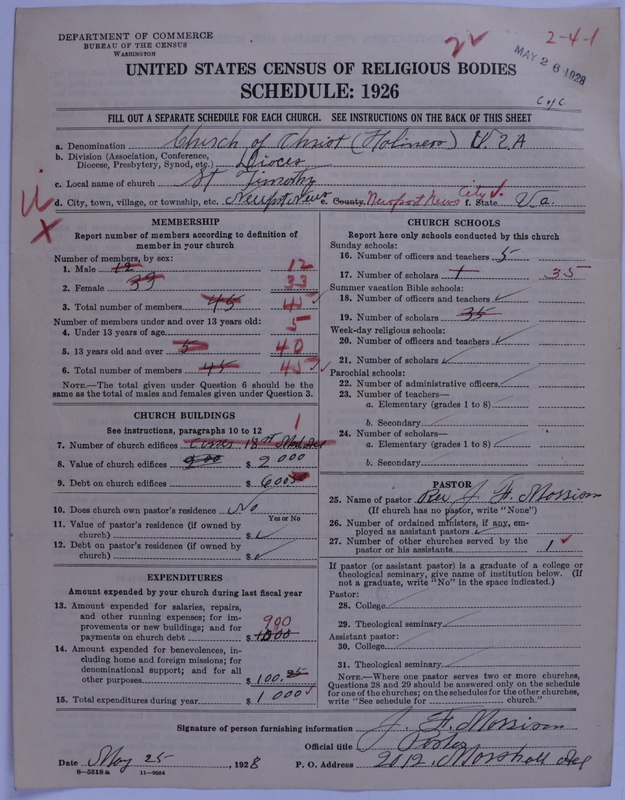 DEPARTMENT OF COMMERCE
BUREAU OF THE CENSUS
WASHINGTON
2-4-1
MAY 26 1928
UNITED STATES CENSUS OF RELIGIOUS BODIES
SCHEDULE: 1926
C of C
FILL OUT A SEPARATE SCHEDULE FOR EACH CHURCH. SEE INSTRUCTIONS ON THE BACK OF THIS SHEET
a. Denomination Church of Christ (Holiness) U.S.A
b. Division (Association, Conference, Diocese, Presbytery, Synod, etc.) Dioces
c. Local name of church St Timothy
d. City, town, village, or township, etc. Newport News e. County Newport News City f. State Va.
MEMBERSHIP
Report number of members according to definition of
member in your church
Number of members, by sex:
1. Male 12 12
2. Female 33
3. Total number of members 45 45
Number of members under and over 13 years old:
4. Under 13 years of age 5
5. 13 years old and over 5 40
6. Total number of members 45 45
NOTE.—The total given under Question 6 should be
same as the total of males and females given under Question 3.
CHURCH BUILDINGS
See instructions, paragraphs 10 to 12
1
7. Number of church edifices 18th
8. Value of church edifices $ 2000
9. Debt on church edifices $ 600
10. Does church own pastor's residence No
Yes or No
11. Value of pastor's residence (if owned by
church) $
12. Debt on pastor's residence (if owned by
church) $
EXPENDITURES
Amount expended by your church during last fiscal year
13. Amount expended for salaries, repairs,
and other running expenses; for im-
provements or new buildings; and for 900
payments on church debt $ 1000
14. Amount expended for benevolences, in-
cluding home and foreign missions; for
denominational support; and for all
other purposes $ 100.25
15. Total expenditures during year $ 1000
CHURCH SCHOOLS
Report here only schools conducted by this church
Sunday schools:
16. Number of officers and teachers 5
17. Number of scholars 1 35
Summer vacation Bible schools:
18. Number of officers and teachers
19. Number of scholars 35
Week-day religious schools:
20. Number of officers and teachers
21. Number of scholars
Parochial schools:
22. Number of administrative officers
23. Number of teachers—
a. Elementary (grades 1 to 8)
b. Secondary
24. Number of scholars—
a. Elementary (grades 1 to 8)
b. Secondary
PASTOR
25. Name of pastor Rev J. H. Morrison
(If church has no pastor, write "None")
26. Number of ordained ministers, if any, em-
ployed as assistant pastors
27. Number of other churches served by the
pastor or his assistants 1
If pastor (or assistant pastor) is a graduate of a college or
theological seminary, give name of institution below. (If
not a graduate, write "No" in the space indicated.)
Pastor:
28. College
29. Theological seminary
Assistant pastor:
30. College
31. Theological seminary
NOTE.—Where one pastor serves two or more churches,
Questions 28 and 29 should be answered only on the schedule
for one of the churches; on the schedules for the other churches,
write "See schedule for church."
Signature of person furnishing information J. H. Morrison
Official title Pastor
Date May 25, 1928 P. O. Address 2012, Marshall Ave
8—5518 a 11—9024